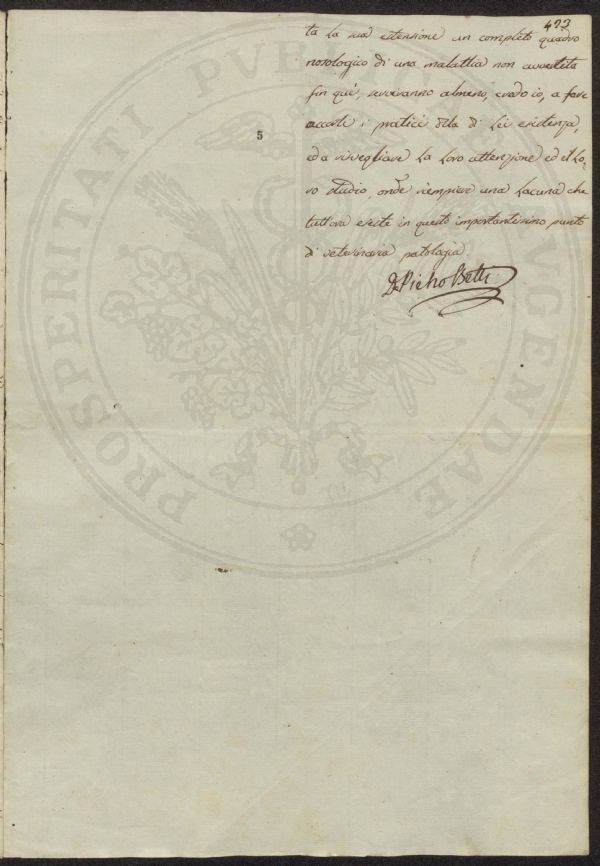 493
ta la sua estensione un completo quadro
nosologico di una malattia non avvertita
fin quì, serviranno almeno, credo io, a fare
accorti i pratici della di Lei esistenza,
ed a risvegliare la loro attenzione ed il Lo-
ro studio, onde riempiere una Lacuna che
tuttora esiste in questo importantissimo punto
di veterinaria patologia.
D. Pietro Betti
5
PROSPERITATI PVBLICAE AVGENDAE